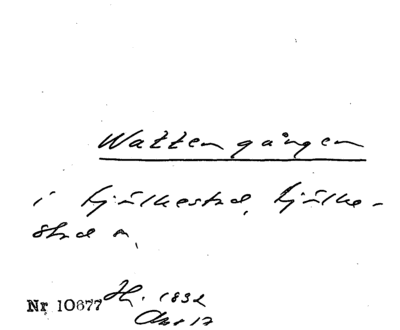 Wattengången
i Kjulkestad, Kjulke-
stad n.
Nr 10677 H. 1832
Akt 17